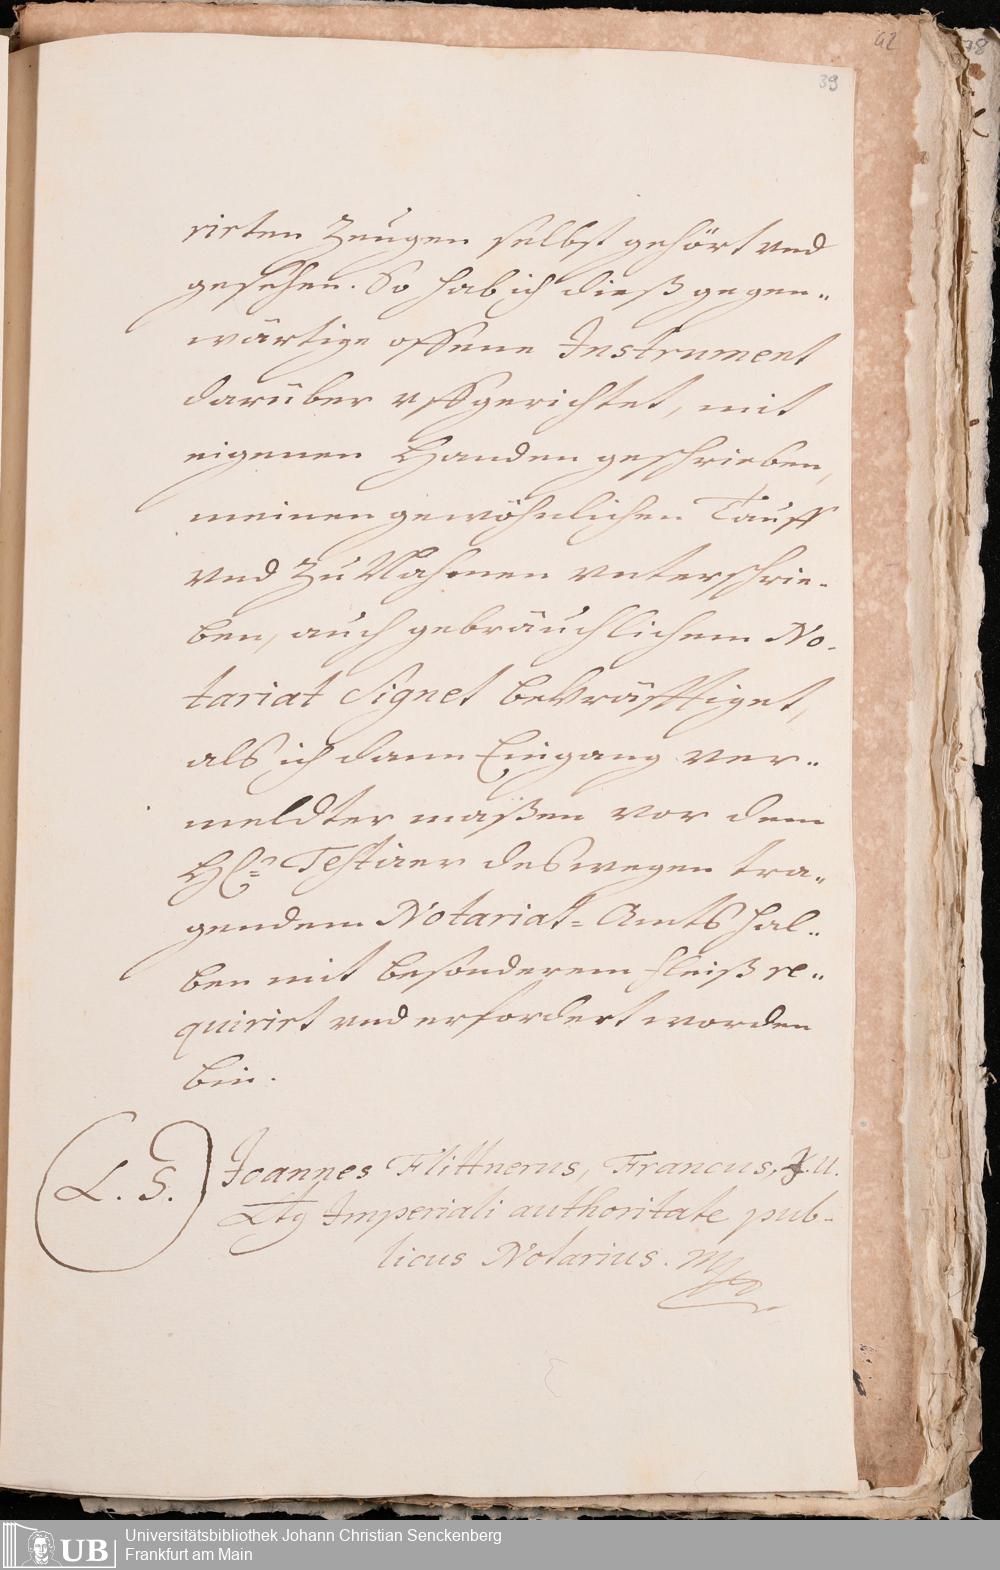 42
39
rirten Zeugen selbst gehört vnd
gesehen. So hab ich dieß gegen-
wärtige offene Instrument
darüber vffgerichtet, mit
eigenen Handen geschrieben,
meinen gewöhnlichen Tauff
vnd Zu Nahmen vnterschrie-
ben, auch gebräuchlichem No-
tariat Signet bekräfftiget,
als ich dann Eingang ver-
meldter maßen vor dem
H. Testirer deswegen tra-
gendem Notariat-Ambts hal-
ben mit besonderem fleiß re-
quirirt vnd erfordert worden
bin.
L. S. Joannes Flittnerus, Francus, J. U.
Imperiali authoritate pub-
licus Notarius. Mpp
UB
Universitätsbibliothek Johann Christian Senckenberg
Frankfurt am Main